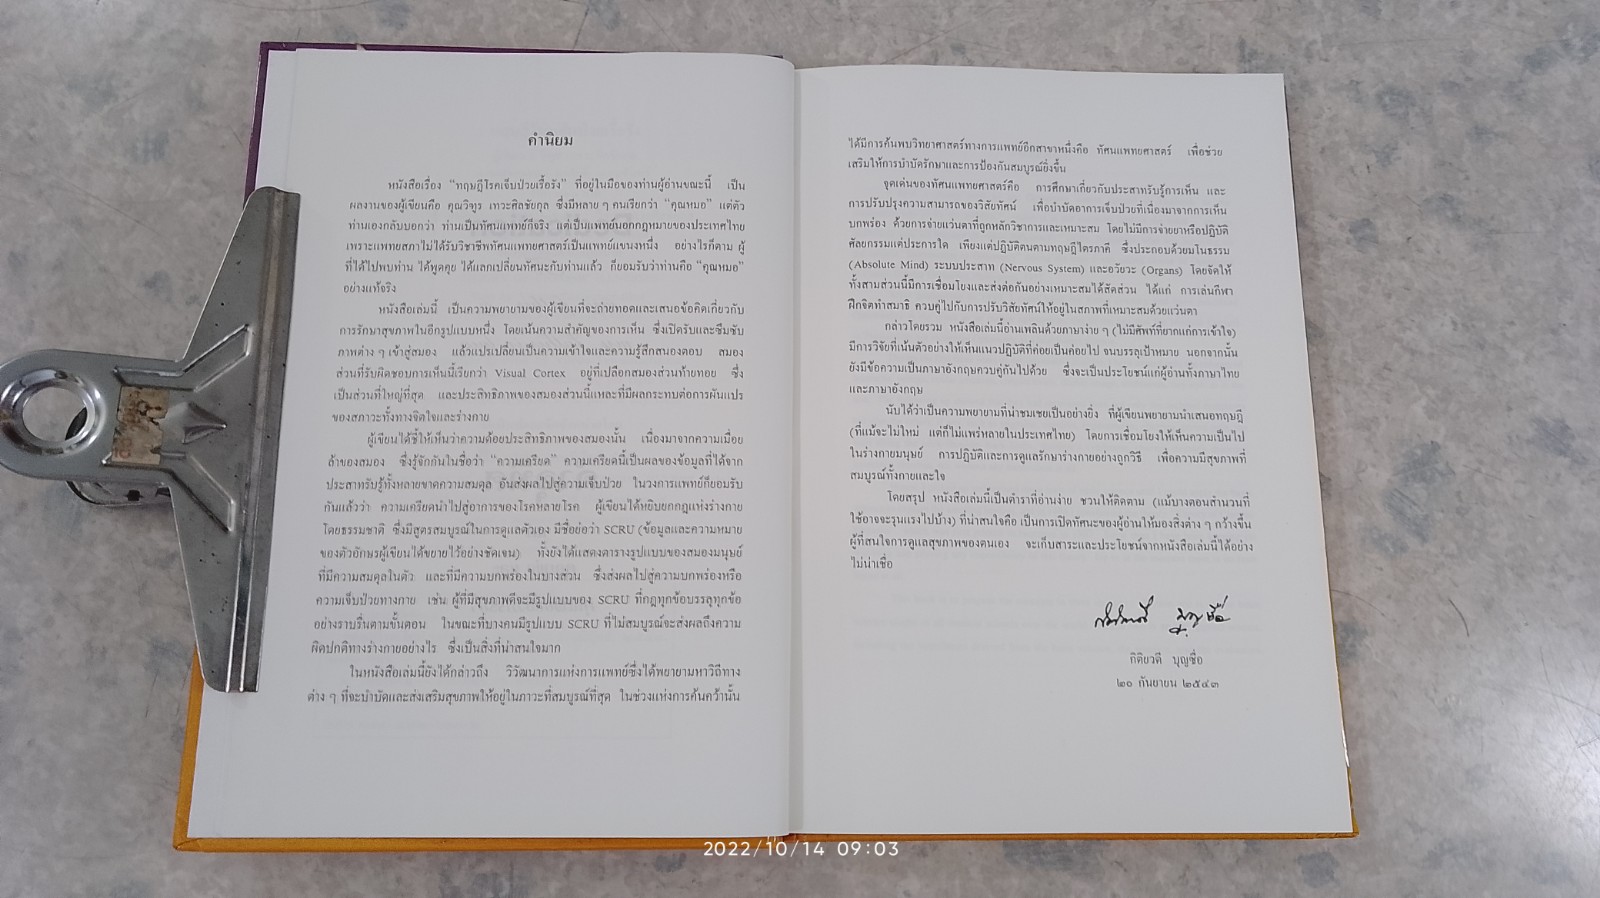 คำนิยม
หนังสือเรื่อง “ทฤษฎีโรคเจ็บป่วยเรื้อรัง” ที่อยู่ในมือของท่านผู้อ่านขณะนี้ เป็น
ผลงานของผู้เขียนคือ คุณวิฑูร เทวะศิลชัยกุล ซึ่งมีหลาย ๆ คนเรียกว่า “คุณหมอ” แต่ตัว
ท่านเองกลับบอกว่า ท่านเป็นทัศนแพทย์ก็จริง แต่เป็นแพทย์นอกกฎหมายของประเทศไทย
เพราะแพทยสภาไม่ได้รับวิชาชีพทัศนแพทยศาสตร์เป็นแพทย์แขนงหนึ่ง อย่างไรก็ตาม ผู้
ที่ได้ไปพบท่าน ได้พูดคุย ได้แลกเปลี่ยนทัศนะกับท่านแล้ว ก็ยอมรับว่าท่านคือ “คุณหมอ”
อย่างแท้จริง
หนังสือเล่มนี้ เป็นความพยายามของผู้เขียนที่จะถ่ายทอดและเสนอข้อคิดเกี่ยวกับ
การรักษาสุขภาพในอีกรูปแบบหนึ่ง โดยเน้นความสำคัญของการเห็น ซึ่งเปิดรับและซึมซับ
ภาพต่าง ๆ เข้าสู่สมอง แล้วแปรเปลี่ยนเป็นความเข้าใจและความรู้สึกสนองตอบ สมอง
ส่วนที่รับผิดชอบการเห็นนี้เรียกว่า Visual Cortex อยู่ที่เปลือกสมองส่วนท้ายทอย ซึ่ง
เป็นส่วนที่ใหญ่ที่สุด และประสิทธิภาพของสมองส่วนนี้แหละที่มีผลกระทบต่อการผันแปร
ของสภาวะทั้งทางจิตใจและร่างกาย
ผู้เขียนได้ชี้ให้เห็นว่าความด้อยประสิทธิภาพของสมองนั้น เนื่องมาจากความเมื่อย
ล้าของสมอง ซึ่งรู้จักกันในชื่อว่า “ความเครียด” ความเครียดนี้เป็นผลของข้อมูลที่ได้จาก
ประสาทรับรู้ทั้งหลายขาดความสมดุล อันส่งผลไปสู่ความเจ็บป่วย ในวงการแพทย์ก็ยอมรับ
กันแล้วว่า ความเครียดนำไปสู่อาการของโรคหลายโรค ผู้เขียนได้หยิบยกกฎแห่งร่างกาย
โดยธรรมชาติ ซึ่งมีสูตรสมบูรณ์ในการดูแลตัวเอง มีชื่อย่อว่า SCRU (ข้อมูลและความหมาย
ของตัวอักษรผู้เขียนได้ขยายไว้อย่างชัดเจน) ทั้งยังได้แสดงตารางรูปแบบของสมองมนุษย์
ที่มีความสมดุลในตัว และที่มีความบกพร่องในบางส่วน ซึ่งส่งผลไปสู่ความบกพร่องหรือ
ความเจ็บป่วยทางกาย เช่น ผู้ที่มีสุขภาพดีจะมีรูปแบบของ SCRU ที่กฎทุกข้อบรรลุทุกข้อ
อย่างราบรื่นตามขั้นตอน ในขณะที่บางคนมีรูปแบบ SCRU ที่ไม่สมบูรณ์จะส่งผลถึงความ
ผิดปกติทางร่างกายอย่างไร ซึ่งเป็นสิ่งที่น่าสนใจมาก
ในหนังสือเล่มนี้ยังได้กล่าวถึง วิวัฒนาการแห่งการแพทย์ซึ่งได้พยายามหาวิถีทาง
ต่าง ๆ ที่จะบำบัดและส่งเสริมสุขภาพให้อยู่ในภาวะที่สมบูรณ์ที่สุด ในช่วงแห่งการค้นคว้านั้น
ได้มีการค้นพบวิทยาศาสตร์ทางการแพทย์อีกสาขาหนึ่งคือ ทัศนแพทยศาสตร์ เพื่อช่วย
เสริมให้การบำบัดรักษาและการป้องกันสมบูรณ์ยิ่งขึ้น
จุดเด่นของทัศนแพทยศาสตร์คือ การศึกษาเกี่ยวกับประสาทรับรู้การเห็น และ
การปรับปรุงความสามารถของวิสัยทัศน์ เพื่อบำบัดอาการเจ็บป่วยที่เนื่องมาจากการเห็น
บกพร่อง ด้วยการจ่ายแว่นตาที่ถูกหลักวิชาการและเหมาะสม โดยไม่มีการจ่ายยาหรือปฏิบัติ
ศัลยกรรมแต่ประการใด เพียงแต่ปฏิบัติตนตามทฤษฎีไตรภาคี ซึ่งประกอบด้วยมโนธรรม
(Absolute Mind) ระบบประสาท (Nervous System) และอวัยวะ (Organs) โดยจัดให้
ทั้งสามส่วนนี้มีการเชื่อมโยงและส่งต่อกันอย่างเหมาะสมได้สัดส่วน ได้แก่ การเล่นกีฬา
ฝึกจิตทำสมาธิ ควบคู่ไปกับการปรับวิสัยทัศน์ให้อยู่ในสภาพที่เหมาะสมด้วยแว่นตา
กล่าวโดยรวม หนังสือเล่มนี้อ่านเพลินด้วยภาษาง่าย ๆ (ไม่มีศัพท์ที่ยากแก่การเข้าใจ)
มีการวิจัยที่เน้นตัวอย่างให้เห็นแนวปฏิบัติที่ค่อยเป็นค่อยไป จนบรรลุเป้าหมาย นอกจากนั้น
ยังมีข้อความเป็นภาษาอังกฤษควบคู่กันไปด้วย ซึ่งจะเป็นประโยชน์แก่ผู้อ่านทั้งภาษาไทย
และภาษาอังกฤษ
นับได้ว่าเป็นความพยายามที่น่าชมเชยเป็นอย่างยิ่ง ที่ผู้เขียนพยายามนำเสนอทฤษฎี
(ที่แม้จะไม่ใหม่ แต่ก็ไม่แพร่หลายในประเทศไทย) โดยการเชื่อมโยงให้เห็นความเป็นไป
ในร่างกายมนุษย์ การปฏิบัติและการดูแลรักษาร่างกายอย่างถูกวิธี เพื่อความมีสุขภาพที่
สมบูรณ์ทั้งกายและใจ
โดยสรุป หนังสือเล่มนี้เป็นตำราที่อ่านง่าย ชวนให้ติดตาม (แม้บางตอนสำนวนที่
ใช้อาจจะรุนแรงไปบ้าง) ที่น่าสนใจคือ เป็นการเปิดทัศนะของผู้อ่านให้มองสิ่งต่าง ๆ กว้างขึ้น
ผู้ที่สนใจการดูแลสุขภาพของตนเอง จะเก็บสาระและประโยชน์จากหนังสือเล่มนี้ได้อย่าง
ไม่น่าเชื่อ
กิติยวดี บุญซื่อ
๒๐ กันยายน ๒๕๔๓
2022/10/14 09:03